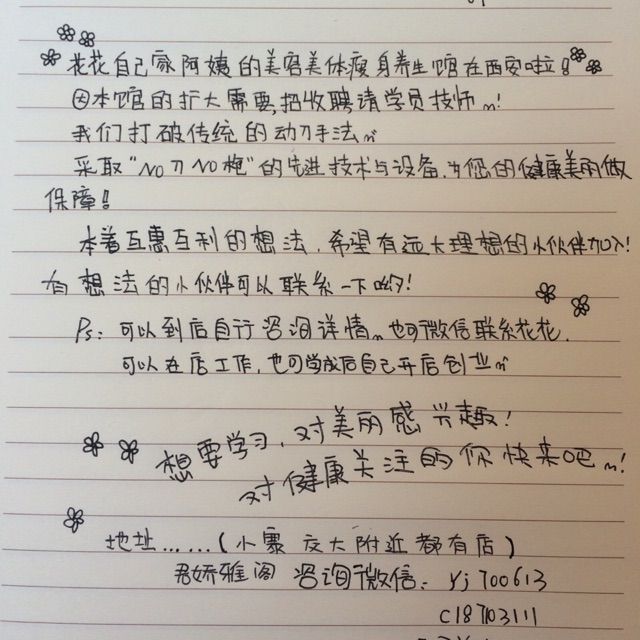 花花自己家阿姨的美容美体瘦身养生馆在西安啦!
因本馆的扩大需要,招收聘请学员技师~!
我们打破传统的动刀手法~
采取“NO刀NO枪”的先进技术与设备,为您的健康美丽做
保障!
本着互惠互利的想法,希望有远大理想的小伙伴加入!
有想法的小伙伴可以联系一下哟!
Ps: 可以到店自行咨询详情~也可微信联系花花.
可以在店工作,也可学成后自己开店创业~
想要学习,对美丽感兴趣!
对健康关注的你快来吧~!
地址……(小寨 交大附近都有店)
君娇雅阁 咨询微信: yj700613